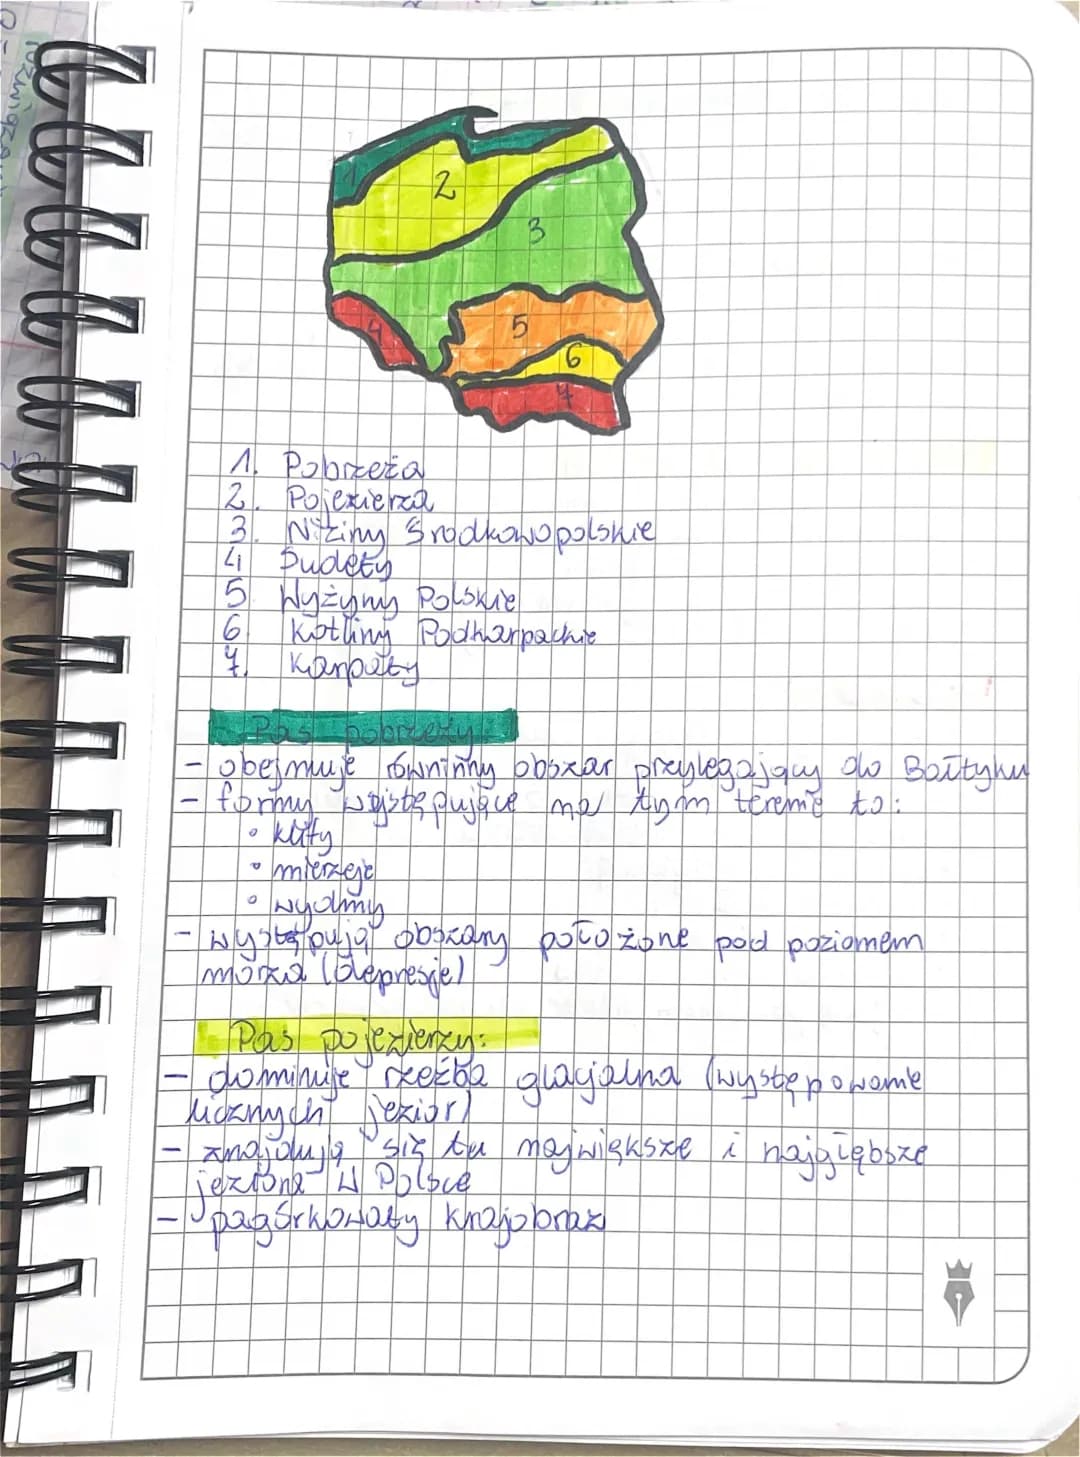 1
2
3
4
5
6
7
1. Pobrzeża
2. Pojezierza
3. Niziny Środkowopolskie
4 Sudety
5. Wyżyny Polskie
6 Kotliny Podkarpackie
7. Karpaty
Pas pobrzeży:
- obejmuje równinny obszar przylegający do Bałtyku
- formy występujące na tym terenie to:
• klify
• mierzeje
• wydmy
- występują obszary położone pod poziomem
morza (depresje)
Pas pojezierzy:
- dominuje rzeźba glacjalna (występowanie
licznych jezior)
- znajdują się tu największe i najgłębsze
jeziora w Polsce
- pagórkowaty krajobraz